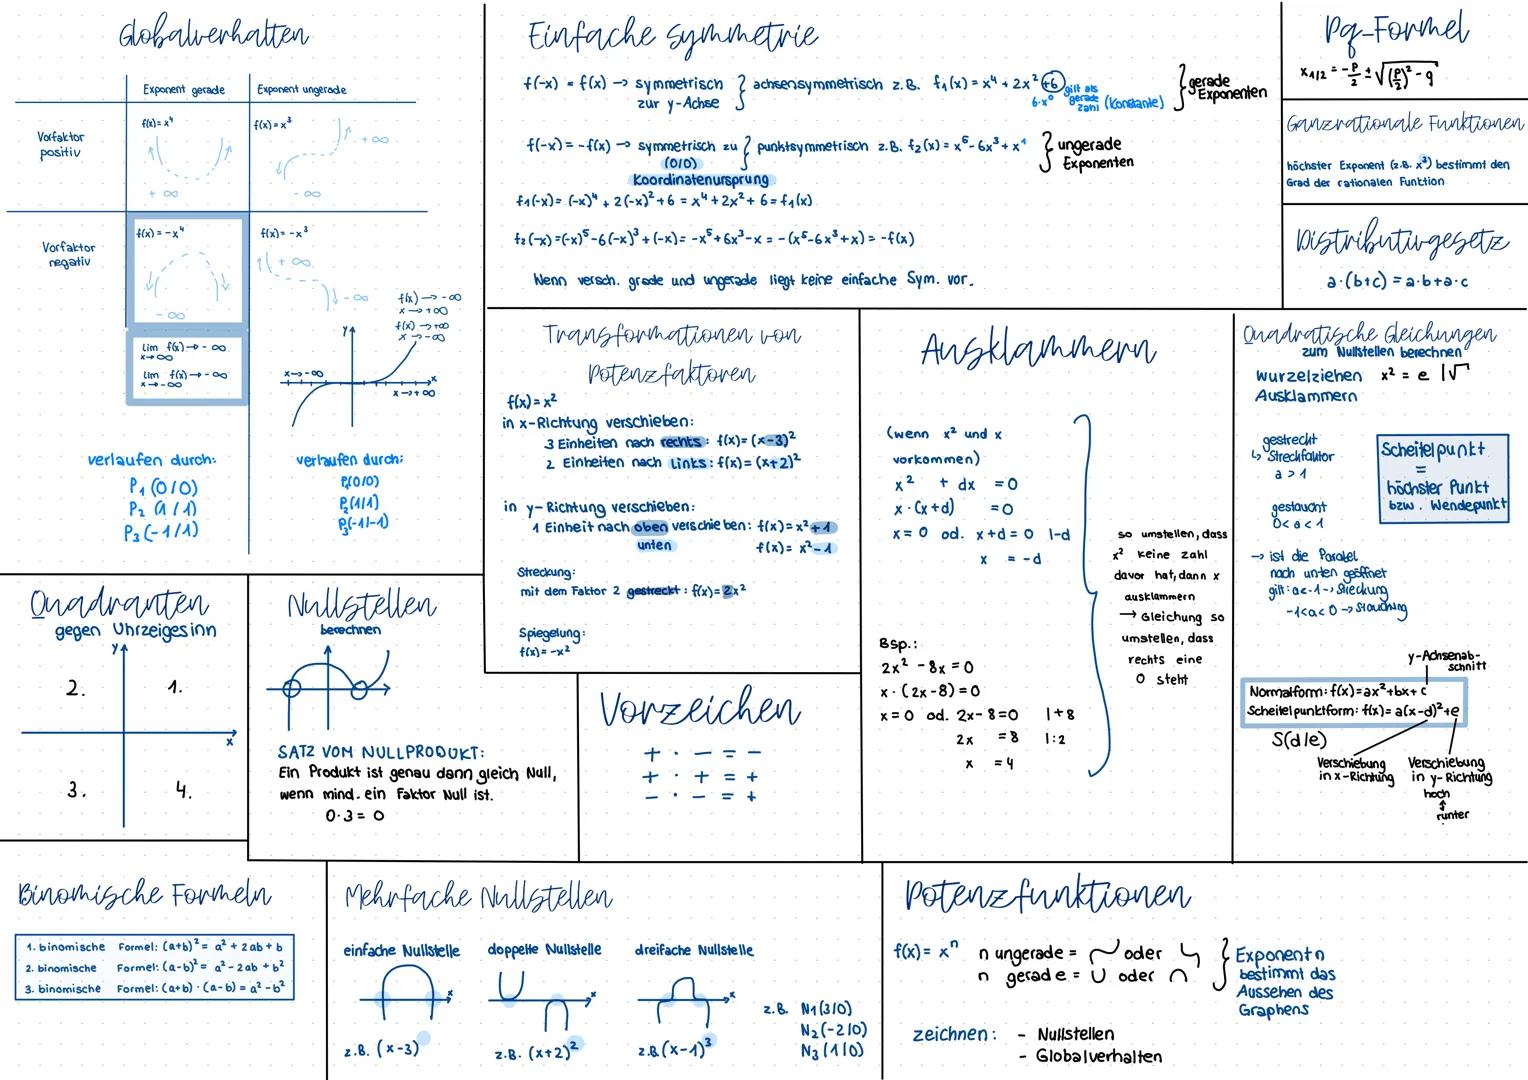 Globalverhalten
Exponent gerade
Exponent ungerade
Vorfaktor
positiv
f(x)=x⁴
+ ∞
f(x)=x³
+ ∞
- ∞
Vorfaktor
negativ
f(x)=-x⁴
- ∞
f(x)=-x³
+ ∞
- ∞
lim f(x)→-∞
x→∞
lim f(x)→-∞
x→-∞
f(x)→-∞
x→+∞
f(x)→+∞
x→-∞
y
x→-∞
x
x→+∞
verlaufen durch:
P₁ (0/0)
P₂ (1/1)
P₃ (-1/1)
verlaufen durch:
P₁(0/0)
P₂(1/1)
P₃(-1/-1)
Einfache Symmetrie
f(-x) = f(x) → symmetrisch } achsensymmetrisch z.B. f₁(x) = x⁴ + 2x² +6 } gerade
zur y-Achse
6·x⁰ gilt als
gerade
Zahl (Konstante)
Exponenten
f(-x) = -f(x) → symmetrisch zu } punktsymmetrisch z.B. f₂(x) = x⁵-6x³+x¹ } ungerade
(0/0)
Exponenten
Koordinatenursprung
f₁(-x) = (-x)⁴ + 2(-x)² + 6 = x⁴ + 2x² + 6 = f₁(x)
f₂(-x) = (-x)⁵-6(-x)³+(-x) = -x⁵+6x³-x = -(x⁵-6x³+x) = -f(x)
Wenn versch. grade und ungerade liegt keine einfache Sym. vor.
Pq-Formel
x₁/₂ = -p/2 ± √((p/2)² - q)
Ganzrationale Funktionen
höchster Exponent (z.B. x³) bestimmt den
Grad der rationalen Funktion
Distributivgesetz
a·(b+c) = a·b+a·c
Transformationen von
Potenzfaktoren
f(x) = x²
in x-Richtung verschieben:
3 Einheiten nach rechts: f(x) = (x-3)²
2 Einheiten nach links: f(x) = (x+2)²
in y-Richtung verschieben:
1 Einheit nach oben verschieben: f(x) = x²+1
unten f(x) = x²-1
Streckung:
mit dem Faktor 2 gestreckt: f(x) = 2x²
Spiegelung:
f(x) = -x²
Ausklammern
(wenn x² und x
vorkommen)
x² + dx = 0
x·(x+d) = 0
x = 0 od. x+d = 0 |-d
x = -d
Bsp.:
2x² - 8x = 0
x·(2x-8) = 0
x = 0 od. 2x-8 = 0 |+8
2x = 8 |:2
x = 4
so umstellen, dass
x² keine zahl
davor hat, dann x
ausklammern
→ Gleichung so
umstellen, dass
rechts eine
0 steht
Quadratische Gleichungen
zum Nullstellen berechnen
Wurzelziehen x² = e |√
Ausklammern
gestreckt
↳ Streckfaktor
a > 1
gestaucht
0 < a < 1
Scheitelpunkt
=
höchster Punkt
bzw. Wendepunkt
→ ist die Parabel
nach unten geöffnet
gilt: a<-1 → Streckung
-1<a<0 → Stauchung
y-Achsenab-
schnitt
Normalform: f(x) = ax²+bx+c
Scheitelpunktform: f(x) = a(x-d)²+e
S(d/e)
Verschiebung
in x-Richtung
Verschiebung
in y-Richtung
hoch
↕
runter
Quadranten
gegen Uhrzeigesinn
y
2. 1.
x
3. 4.
Nullstellen
berechnen
SATZ VOM NULLPRODUKT:
Ein Produkt ist genau dann gleich Null,
wenn mind. ein Faktor Null ist.
0·3 = 0
Vorzeichen
+ · - = -
+ · + = +
- · - = +
Binomische Formeln
1. binomische Formel: (a+b)² = a² + 2ab + b
2. binomische Formel: (a-b)² = a² - 2ab + b²
3. binomische Formel: (a+b)·(a-b) = a² - b²
Mehrfache Nullstellen
einfache Nullstelle
doppelte Nullstelle
dreifache Nullstelle
x
x
x
z.B. (x-3)
z.B. (x+2)²
z.B. (x-1)³
z.B. N₁(3/0)
N₂(-2/0)
N₃(1/0)
Potenzfunktionen
f(x) = xⁿ n ungerade = oder
n gerade = ∪ oder ∩
Exponent n
bestimmt das
Aussehen des
Graphens
zeichnen: - Nullstellen
- Globalverhalten